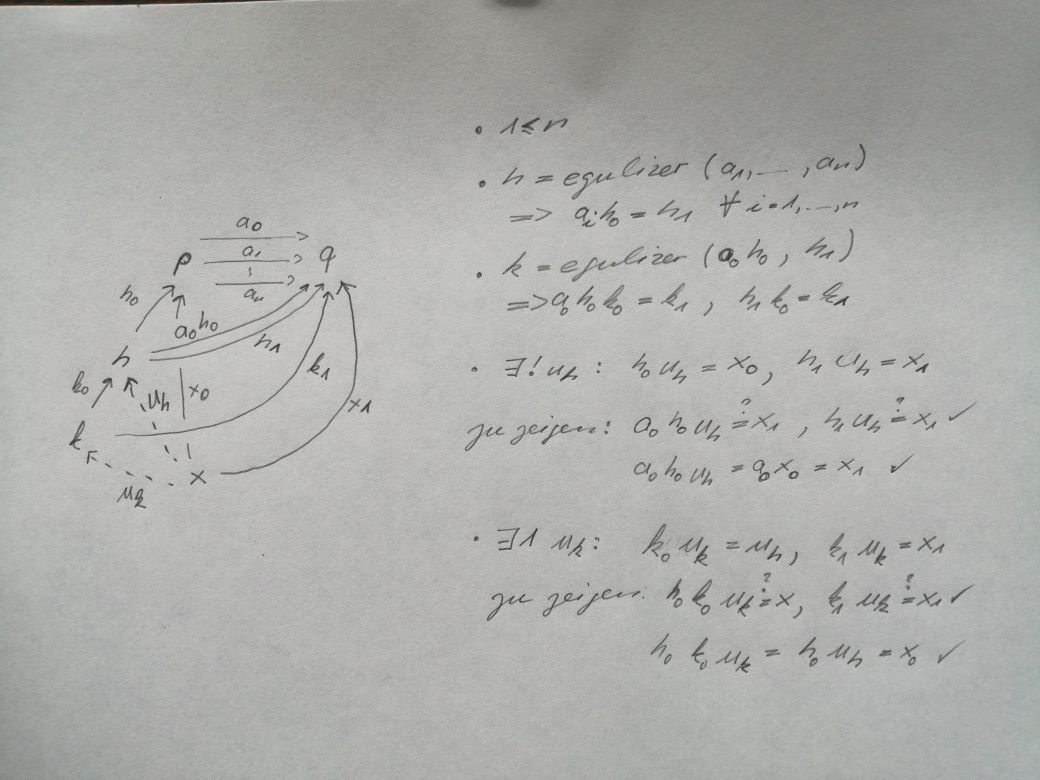 a₀
a₁
⋮
aₙ
p
q
h₀
a₀h₀
h₁
h
k₀
uₕ
x₀
k₁
x₁
k
x
uₖ
• 1 ≤ n
• h = equlizer (a₁, ... , aₙ)
=> aᵢh₀ = h₁ ∀ i=1,...,n
• k = equlizer (a₀h₀, h₁)
=> a₀h₀k₀ = k₁, h₁k₀ = k₁
• ∃! uₕ : h₀uₕ = x₀, h₁uₕ = x₁
zu zeigen: a₀h₀uₕ ≟ x₁, h₁uₕ ≟ x₁ ✓
a₀h₀uₕ = a₀x₀ = x₁ ✓
• ∃1 uₖ: k₀uₖ = uₕ, k₁uₖ = x₁
zu zeigen: h₀k₀uₖ ≟ x, k₁uₖ ≟ x₁ ✓
h₀k₀uₖ = h₀uₕ = x₀ ✓